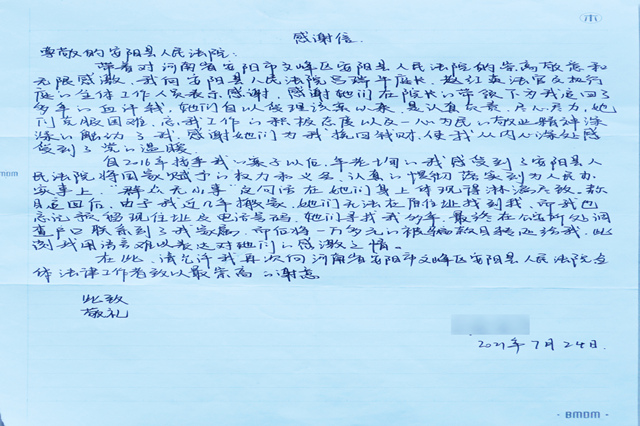 感谢信
尊敬的安阳县人民法院:
带着对河南省安阳市文峰区安阳县人民法院的崇高敬意和
无限感激,我向安阳县人民法院吕瑞平庭长、赵江燕法官及执行
庭的全体工作人员表示感谢,感谢她们在院长的带领下为我追回了
多年的血汗钱,她们自从受理该案以来,是认真负责、尽心尽力,她
们克服困难、忘我工作的积极态度以及一心为民的敬业精神深
深的触动了我。感谢她们为我挽回钱财,使我从内心深处感
受到了党的温暖。
自2016年接手我的案子以后,年老七旬的我感受到了安阳县人
民法院将国家赋予的权力和义务,认真的惯彻落实到为人民办
实事上,"群众无小事"这句话在她们身上体现得淋漓尽致。款
追回后,由于我近几年搬家,她们无法在原住址找到我,而我也
忘记了现住址及电话号码,她们寻找我多年,最终在公安处调
查户口联系到了我家属,即后将一万多元的被骗款归还给我,此
刻我用语言难以表达对她们的感激之情。
在此,请允许我再次向河南省安阳市文峰区安阳县人民法院全
体法律工作者致以最崇高的谢意
此致
敬礼
2021年7月24日.
BMDM
BMDM